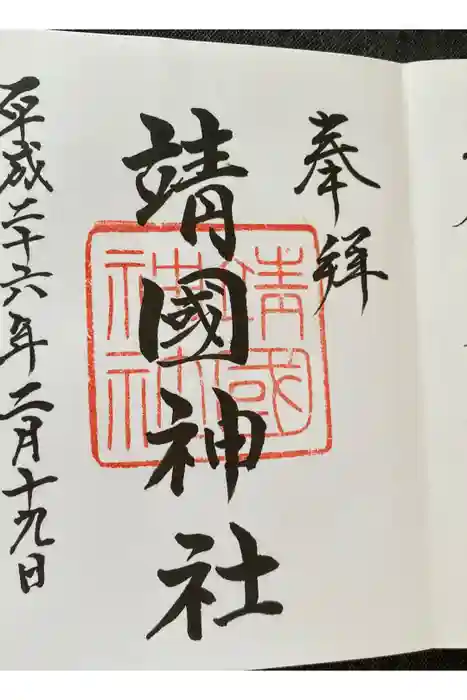 奉拝
靖國神社
靖國
神社
平成二十六年二月十九日